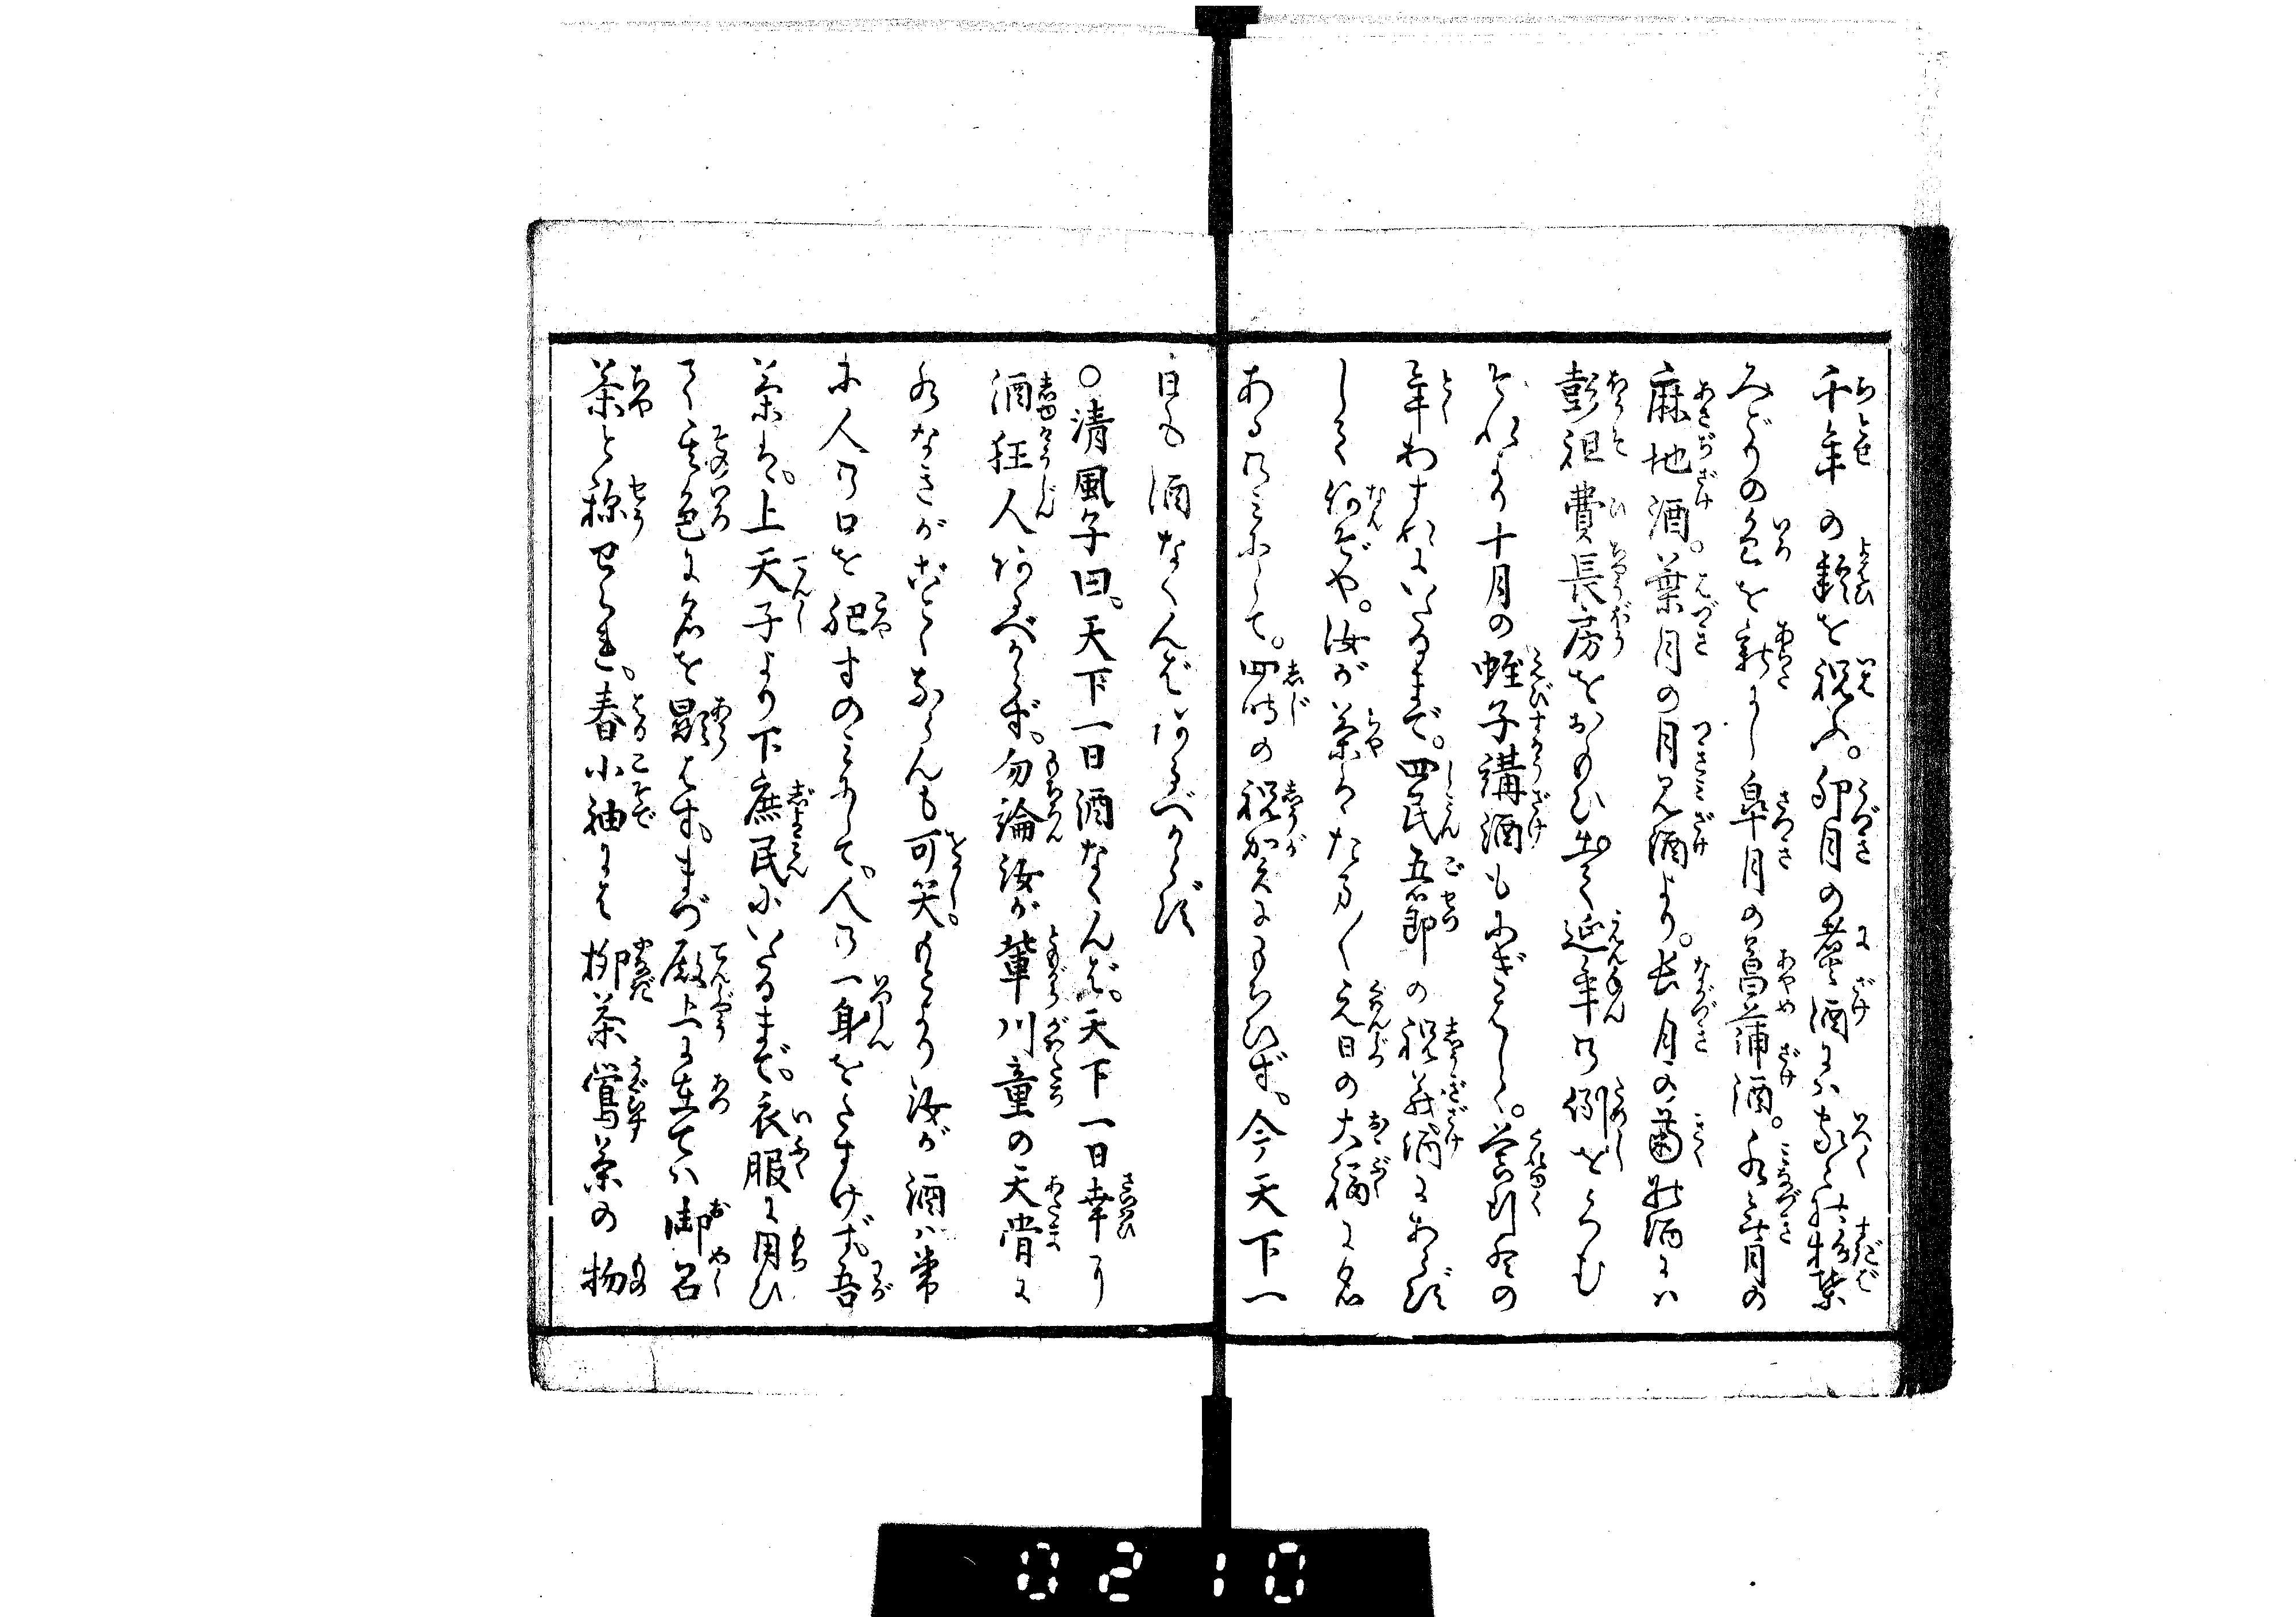 千年の齢を祝ふ。卯月の煮酒にハ家〻に杉葉
みどりの色を新にし皐月の菖蒲酒。水無月の
麻地酒。葉月の月見酒より。長月の菊の酒にハ
彭祖費長房をおもひ出て延年の例をつむ
それより十月の蛭子講酒もにぎ〳〵しく。
年わすれにいたるまで。四民五節の祝義酒にあらず
して何ぞや。汝が茶はたま〳〵元日の大福に名
あるのミにして。四時の祝賀にもちひず。今天下一
日も酒なくんばあるべからず
○清風子曰。天下一日酒なくんば。天下一日幸なり
酒狂人あるべからず。勿論汝が輩川童の天骨に
水なきがごとくならんも可笑。もとより汝が酒ハ常
に人の口を肥すのミにして。人の一身をたすけず。吾
茶は。上天子より下庶民にいたるまで。衣服に用ひ
て其色に名を顕はす。まづ殿上に在てハ御召
茶と称せられ。春小袖には柳茶鶯茶の物
0210